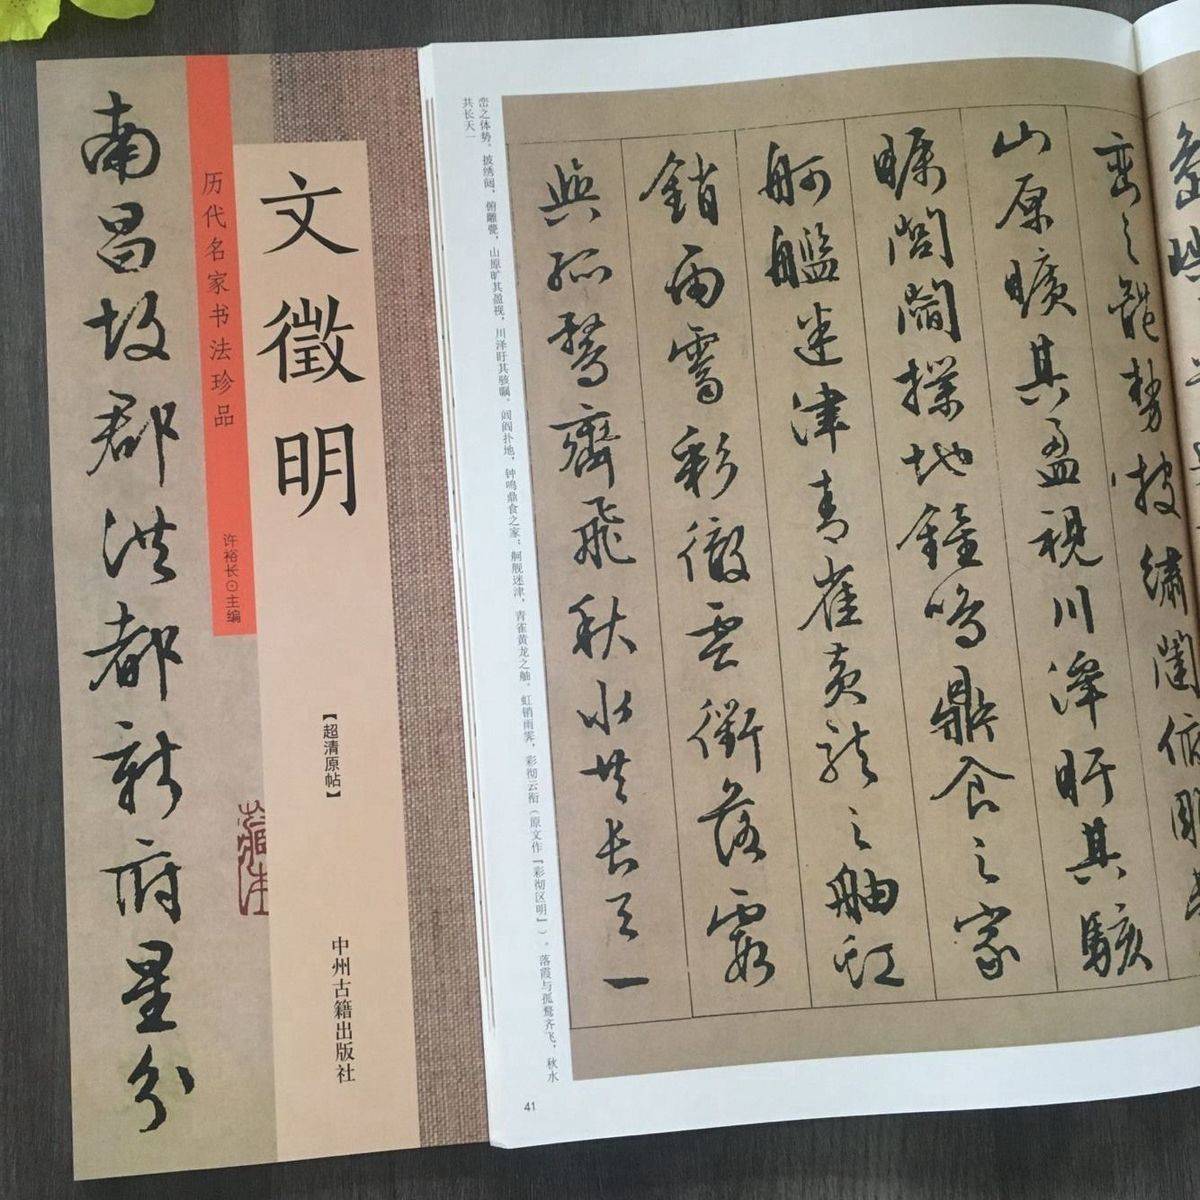 南昌故郡洪都新府星分
历代名家书法珍品
许裕长⊙主编
文徵明
【超清原帖】
中州古籍出版社
峦之体势。披绣闼，俯雕甍，山原旷其盈视，川泽盱其骇瞩。闾阎扑地，钟鸣鼎食之家；舸舰迷津，青雀黄龙之舳。虹销雨霁，彩彻云衢（原文作『彩彻区明』）。落霞与孤鹜齐飞，秋水
共长天一
巒之體勢披繡闥俯雕甍
山原曠其盈視川澤盱其駭
矚閭閻撲地鐘鳴鼎食之家
舸艦迷津青雀黃龍之舳虹
銷雨霽彩徹雲衢落霞
與孤鶩齊飛秋水共長天一
41